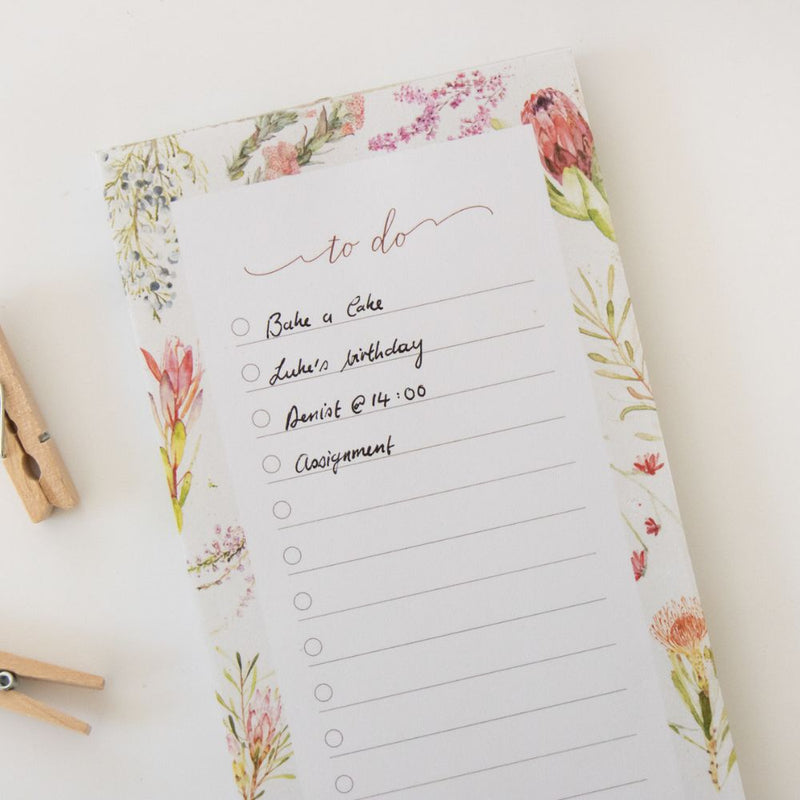 to do
Bake a Cake
Luke's birthday
Denist @ 14:00
Assignment